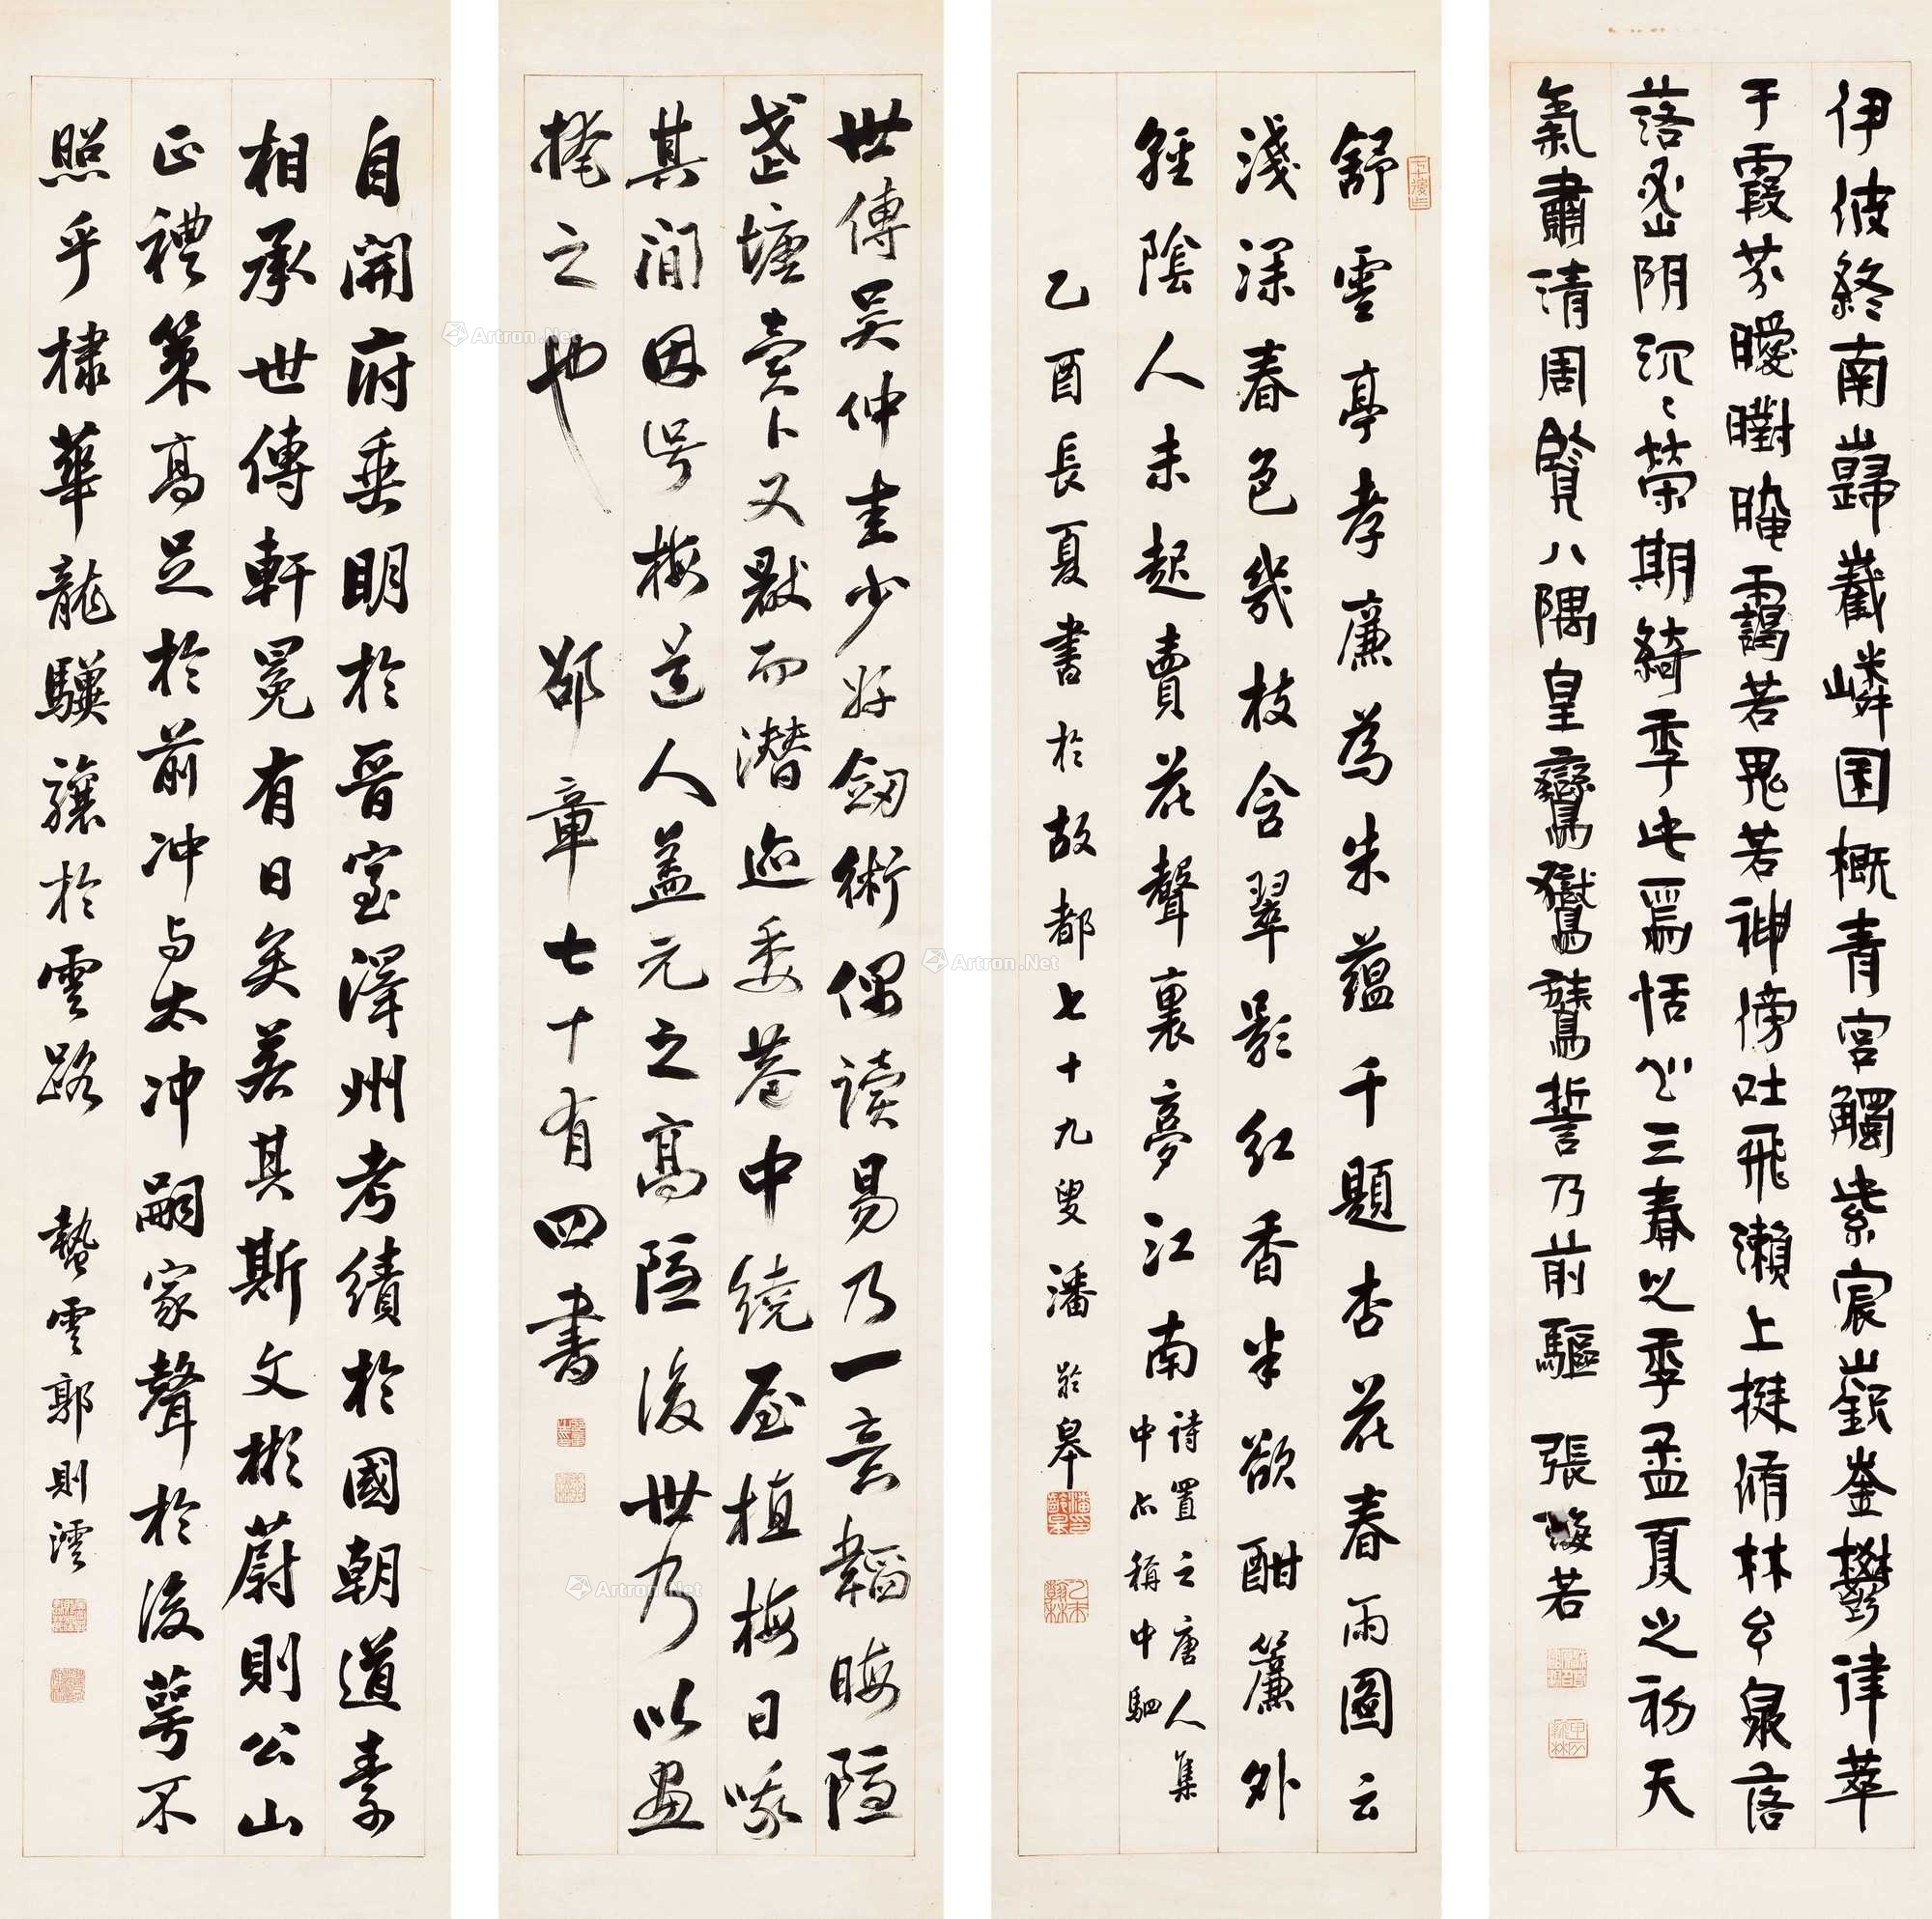 伊彼終南巋巀嶙囷概青宮觸紫宸嶔崟鬱律萃
于霞芬曖㬣晻靄若鬼若神傍吐飛瀨上挻脩林玄泉落
落密阴沉沉榮期綺季此焉恬心三春之季孟夏之初天
氣肅清周覽八隅皇鸞鸑鷟誓乃前驅 張海若
舒雲亭孝廉為朱蘊千題杏花春雨圖云
淺深春色幾枝含翠影紅香半欲酣簾外
輕陰人未起賣花聲裏夢江南
詩置之唐人集
中亦稱中駟
乙酉長夏書於故都七十九叟潘齡皋
世傳吴仲圭少好劔術偶读易乃一意韜晦隐
武塘賣卜又厭而潜迹委巷中繞屋植梅日哦
其间因号梅道人盖元之高隐後世乃以画
掩之也 邵章七十有四書
自開府垂明於晉室澤州考績於國朝道素
相承世傳軒冕有日矣若其斯文彬蔚則公山
正禮策高足於前冲与太冲嗣家聲於後萼不
照乎棣華龍驥驤於雲路 蟄雲郭則澐
Artron.Net
Artron.Net
Artron.Net